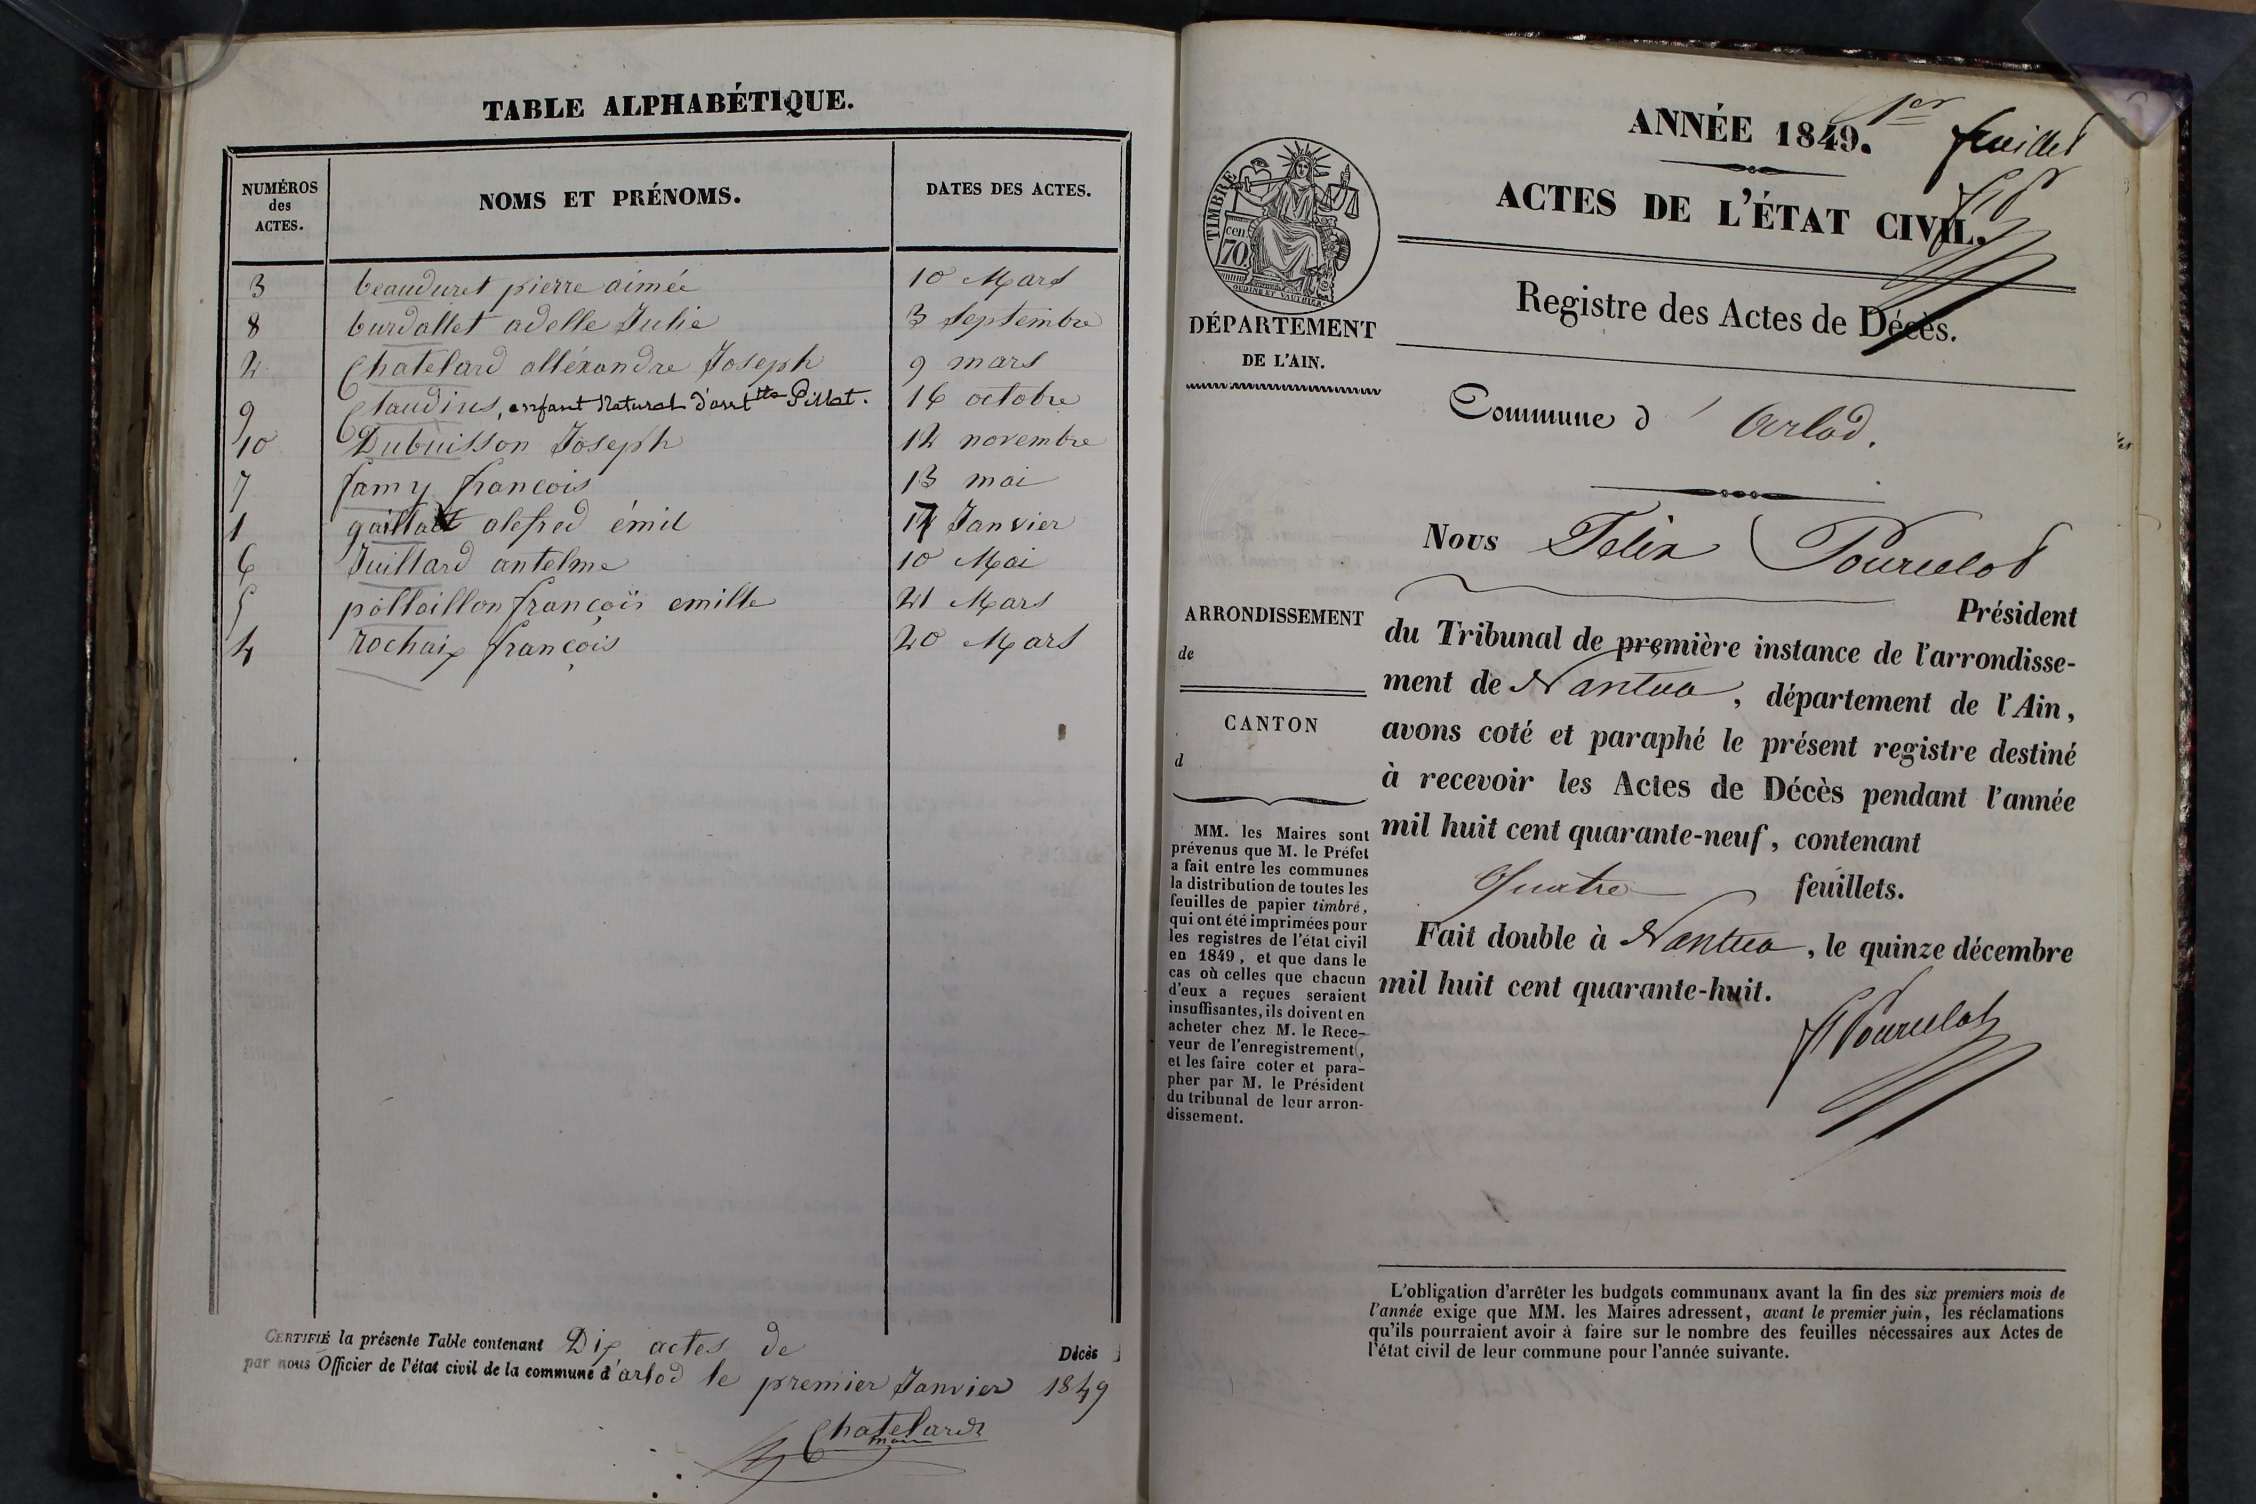 TABLE ALPHABÉTIQUE.
NUMÉROS
des
ACTES.
NOMS ET PRÉNOMS.
DATES DES ACTES.
3 beauduret pierre aimée 10 Mars
8 burdallet adelle Julie 3 Septembre
2 Chatelard alléxandre Joseph 9 mars
9 Claudius, enfant Naturel d'ant.tte Pillet. 16 octobre
10 Dubuisson Joseph 12 novembre
7 famy françois 13 mai
1 olefred émil Janvier
6 Juillard antelme 10 Mai
5 pottaillon françois emille 21 Mars
4 rochaix françois 20 Mars
CERTIFIÉ la présente Table contenant Dix actes de Décès
par nous Officier de l'état civil de la commune d'arlod le premier Janvier 1849
Chatelard
maire
1er feuillet
ANNÉE 1849.
ACTES DE L'ÉTAT CIVIL.
Registre des Actes de Décès.
TIMBRE
70 cen
OUDINÉ ET VAUTHIER.
DÉPARTEMENT
DE L'AIN.
Commune d'Arlod.
Nous Felix Pourcelot
Président
du Tribunal de première instance de l'arrondisse-
ment de Nantua, département de l'Ain,
avons coté et paraphé le présent registre destiné
à recevoir les Actes de Décès pendant l'année
mil huit cent quarante-neuf, contenant
Quatre feuillets.
Fait double à Nantua, le quinze décembre
mil huit cent quarante-huit.
Pourcelot
ARRONDISSEMENT
de
CANTON
d
MM. les Maires sont
prévenus que M. le Préfet
a fait entre les communes
la distribution de toutes les
feuilles de papier timbré,
qui ont été imprimées pour
les registres de l'état civil
en 1849, et que dans le
cas où celles que chacun
d'eux a reçues seraient
insuffisantes, ils doivent en
acheter chez M. le Rece-
veur de l'enregistrement,
et les faire coter et para-
pher par M. le Président
du tribunal de leur arron-
dissement.
L'obligation d'arrêter les budgets communaux avant la fin des six premiers mois de
l'année exige que MM. les Maires adressent, avant le premier juin, les réclamations
qu'ils pourraient avoir à faire sur le nombre des feuilles nécessaires aux Actes de
l'état civil de leur commune pour l'année suivante.